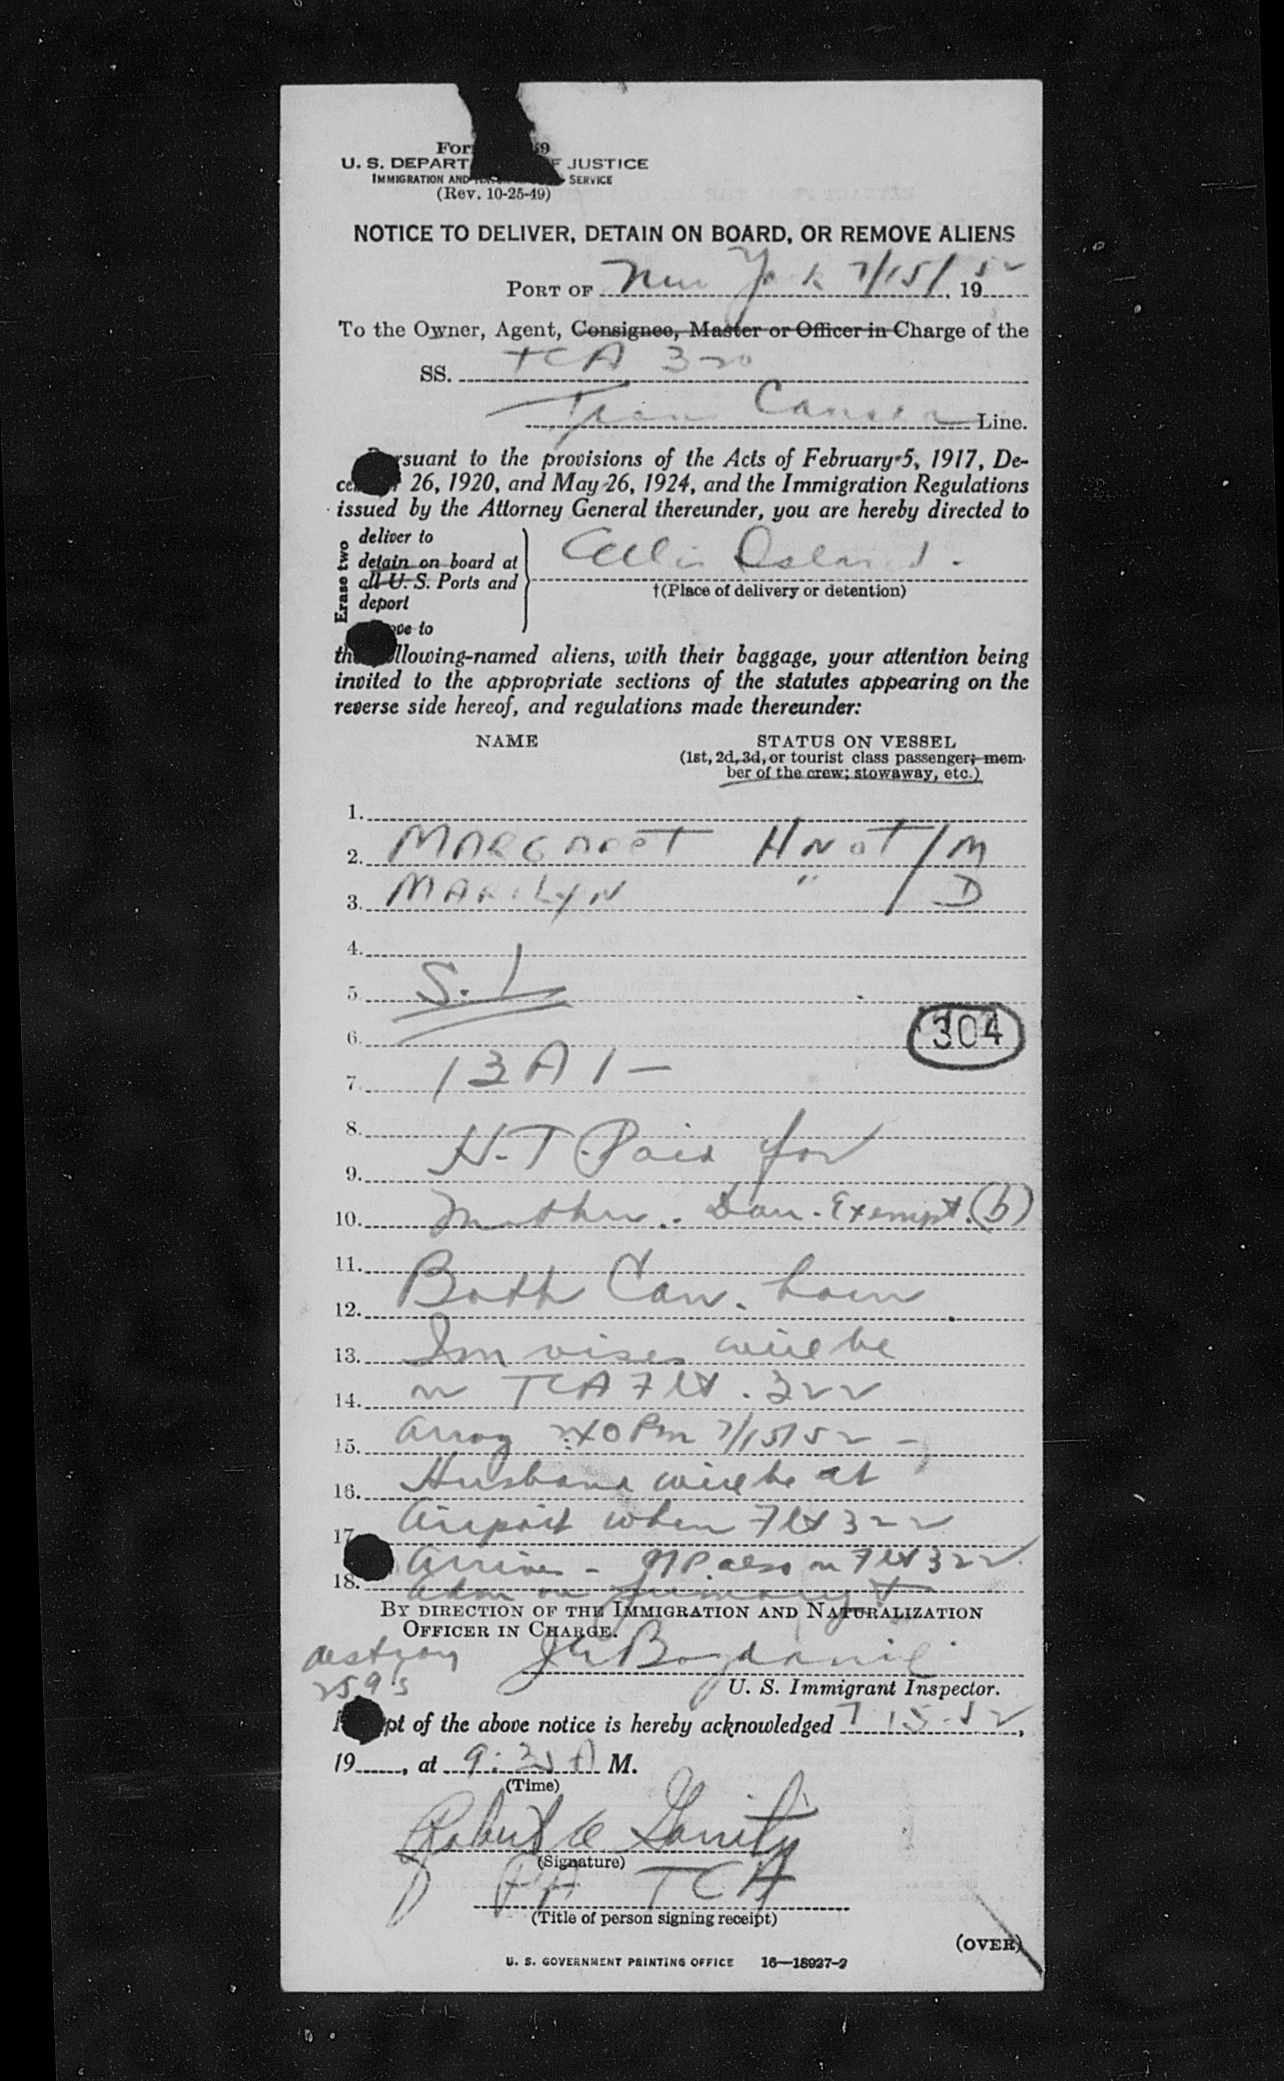 For 59
U. S. DEPART F JUSTICE
IMMIGRATION AND SERVICE
(Rev. 10-25-49)
NOTICE TO DELIVER, DETAIN ON BOARD, OR REMOVE ALIENS
PORT OF New York 7/15/, 1952
To the Owner, Agent, Consignee, Master or Officer in Charge of the
SS. TCA 320
Trans Canada Line.
rsuant to the provisions of the Acts of February 5, 1917, De-
ce r 26, 1920, and May 26, 1924, and the Immigration Regulations
issued by the Attorney General thereunder, you are hereby directed to
Erase two
deliver to
detain on board at
all U. S. Ports and
deport
ove to
Ellis Island.
†(Place of delivery or detention)
th llowing-named aliens, with their baggage, your attention being
invited to the appropriate sections of the statutes appearing on the
reverse side hereof, and regulations made thereunder:
NAME STATUS ON VESSEL
(1st, 2d, 3d, or tourist class passenger; mem-
ber of the crew; stowaway, etc.)
1.
2. MARGARET HNOT / M
3. MARILYN " / D
4.
5. S. I.
6.
304
7. 13A1-
8.
9. H.T. Paid for
10. Mother. Dau. Exempt. (b)
11.
12. Both Can. born
13. Im visas will be
14. on TCA Flt. 322
15. arrvg 2:40 Pm 7/15/52 -
16. Husband will be at
17. Airport when Flt 322
18. Arrives - PP. also on Flt 322
Adm on primary
BY DIRECTION OF THE IMMIGRATION AND NATURALIZATION
OFFICER IN CHARGE.
destroy
259s
U. S. Immigrant Inspector.
R pt of the above notice is hereby acknowledged 7 15-52,
19 , at 9:30 A M.
(Time)
Robert Garrity
(Signature)
PA TCA
(Title of person signing receipt)
(OVER)
U. S. GOVERNMENT PRINTING OFFICE 16—18927-2